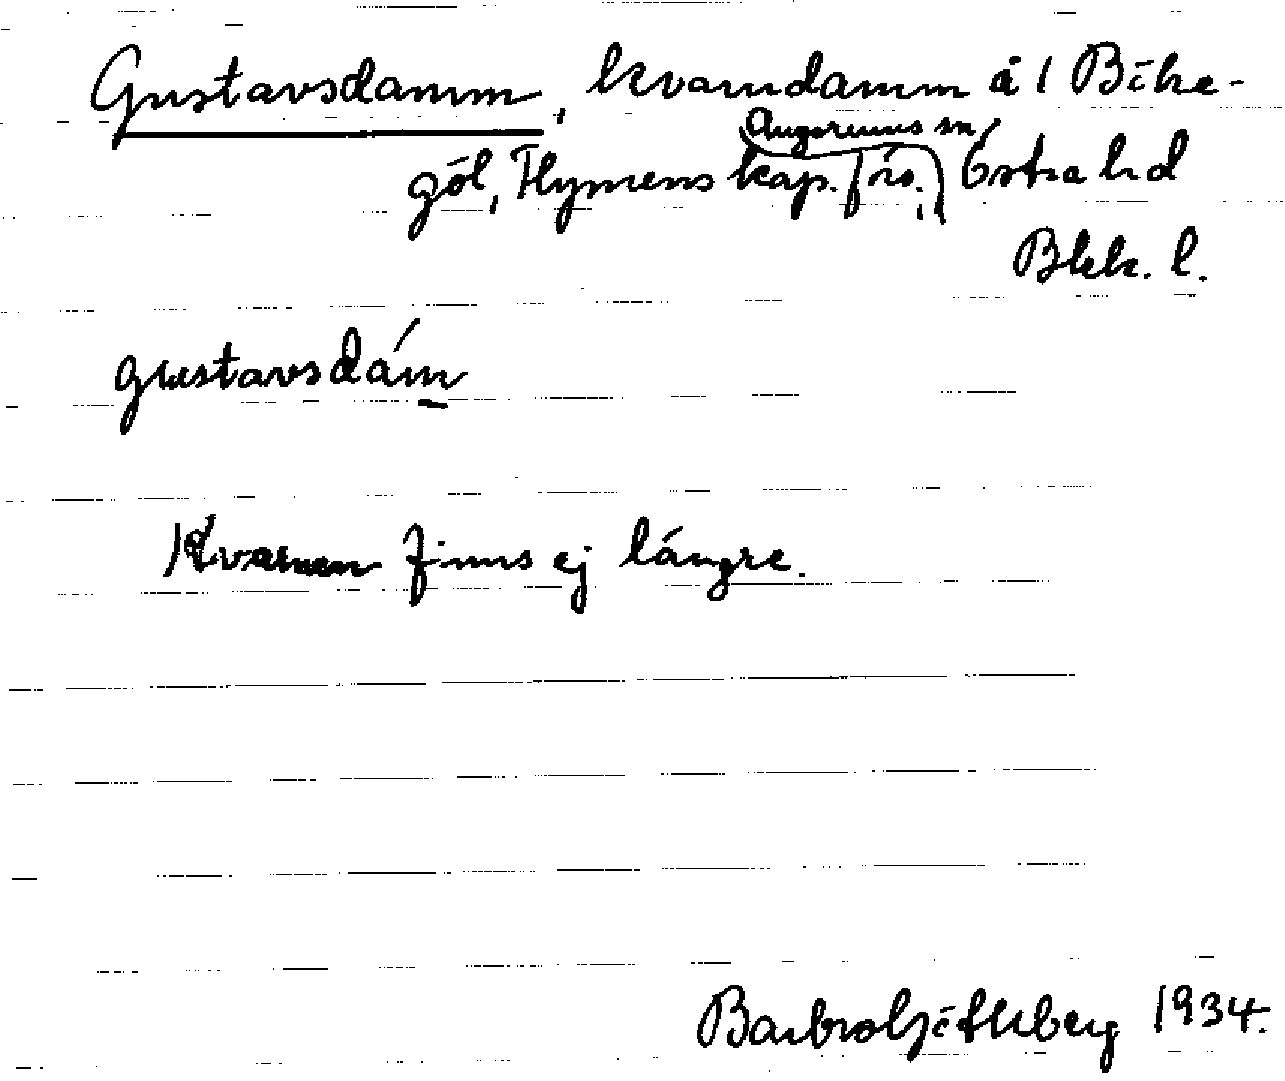 Gustavsdamm, kvarndamm å 1 Böke-
Augerums sn,
göl, Flymens kap. förs., Östra hd
Blek. l.
gustavsdám
Kvarnen finns ej längre.
1934.